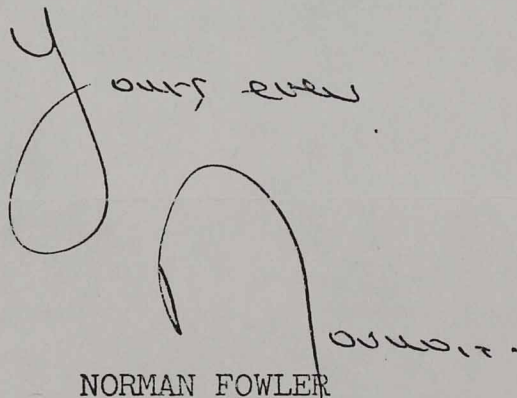 Yours ever
Norman.
NORMAN FOWLER